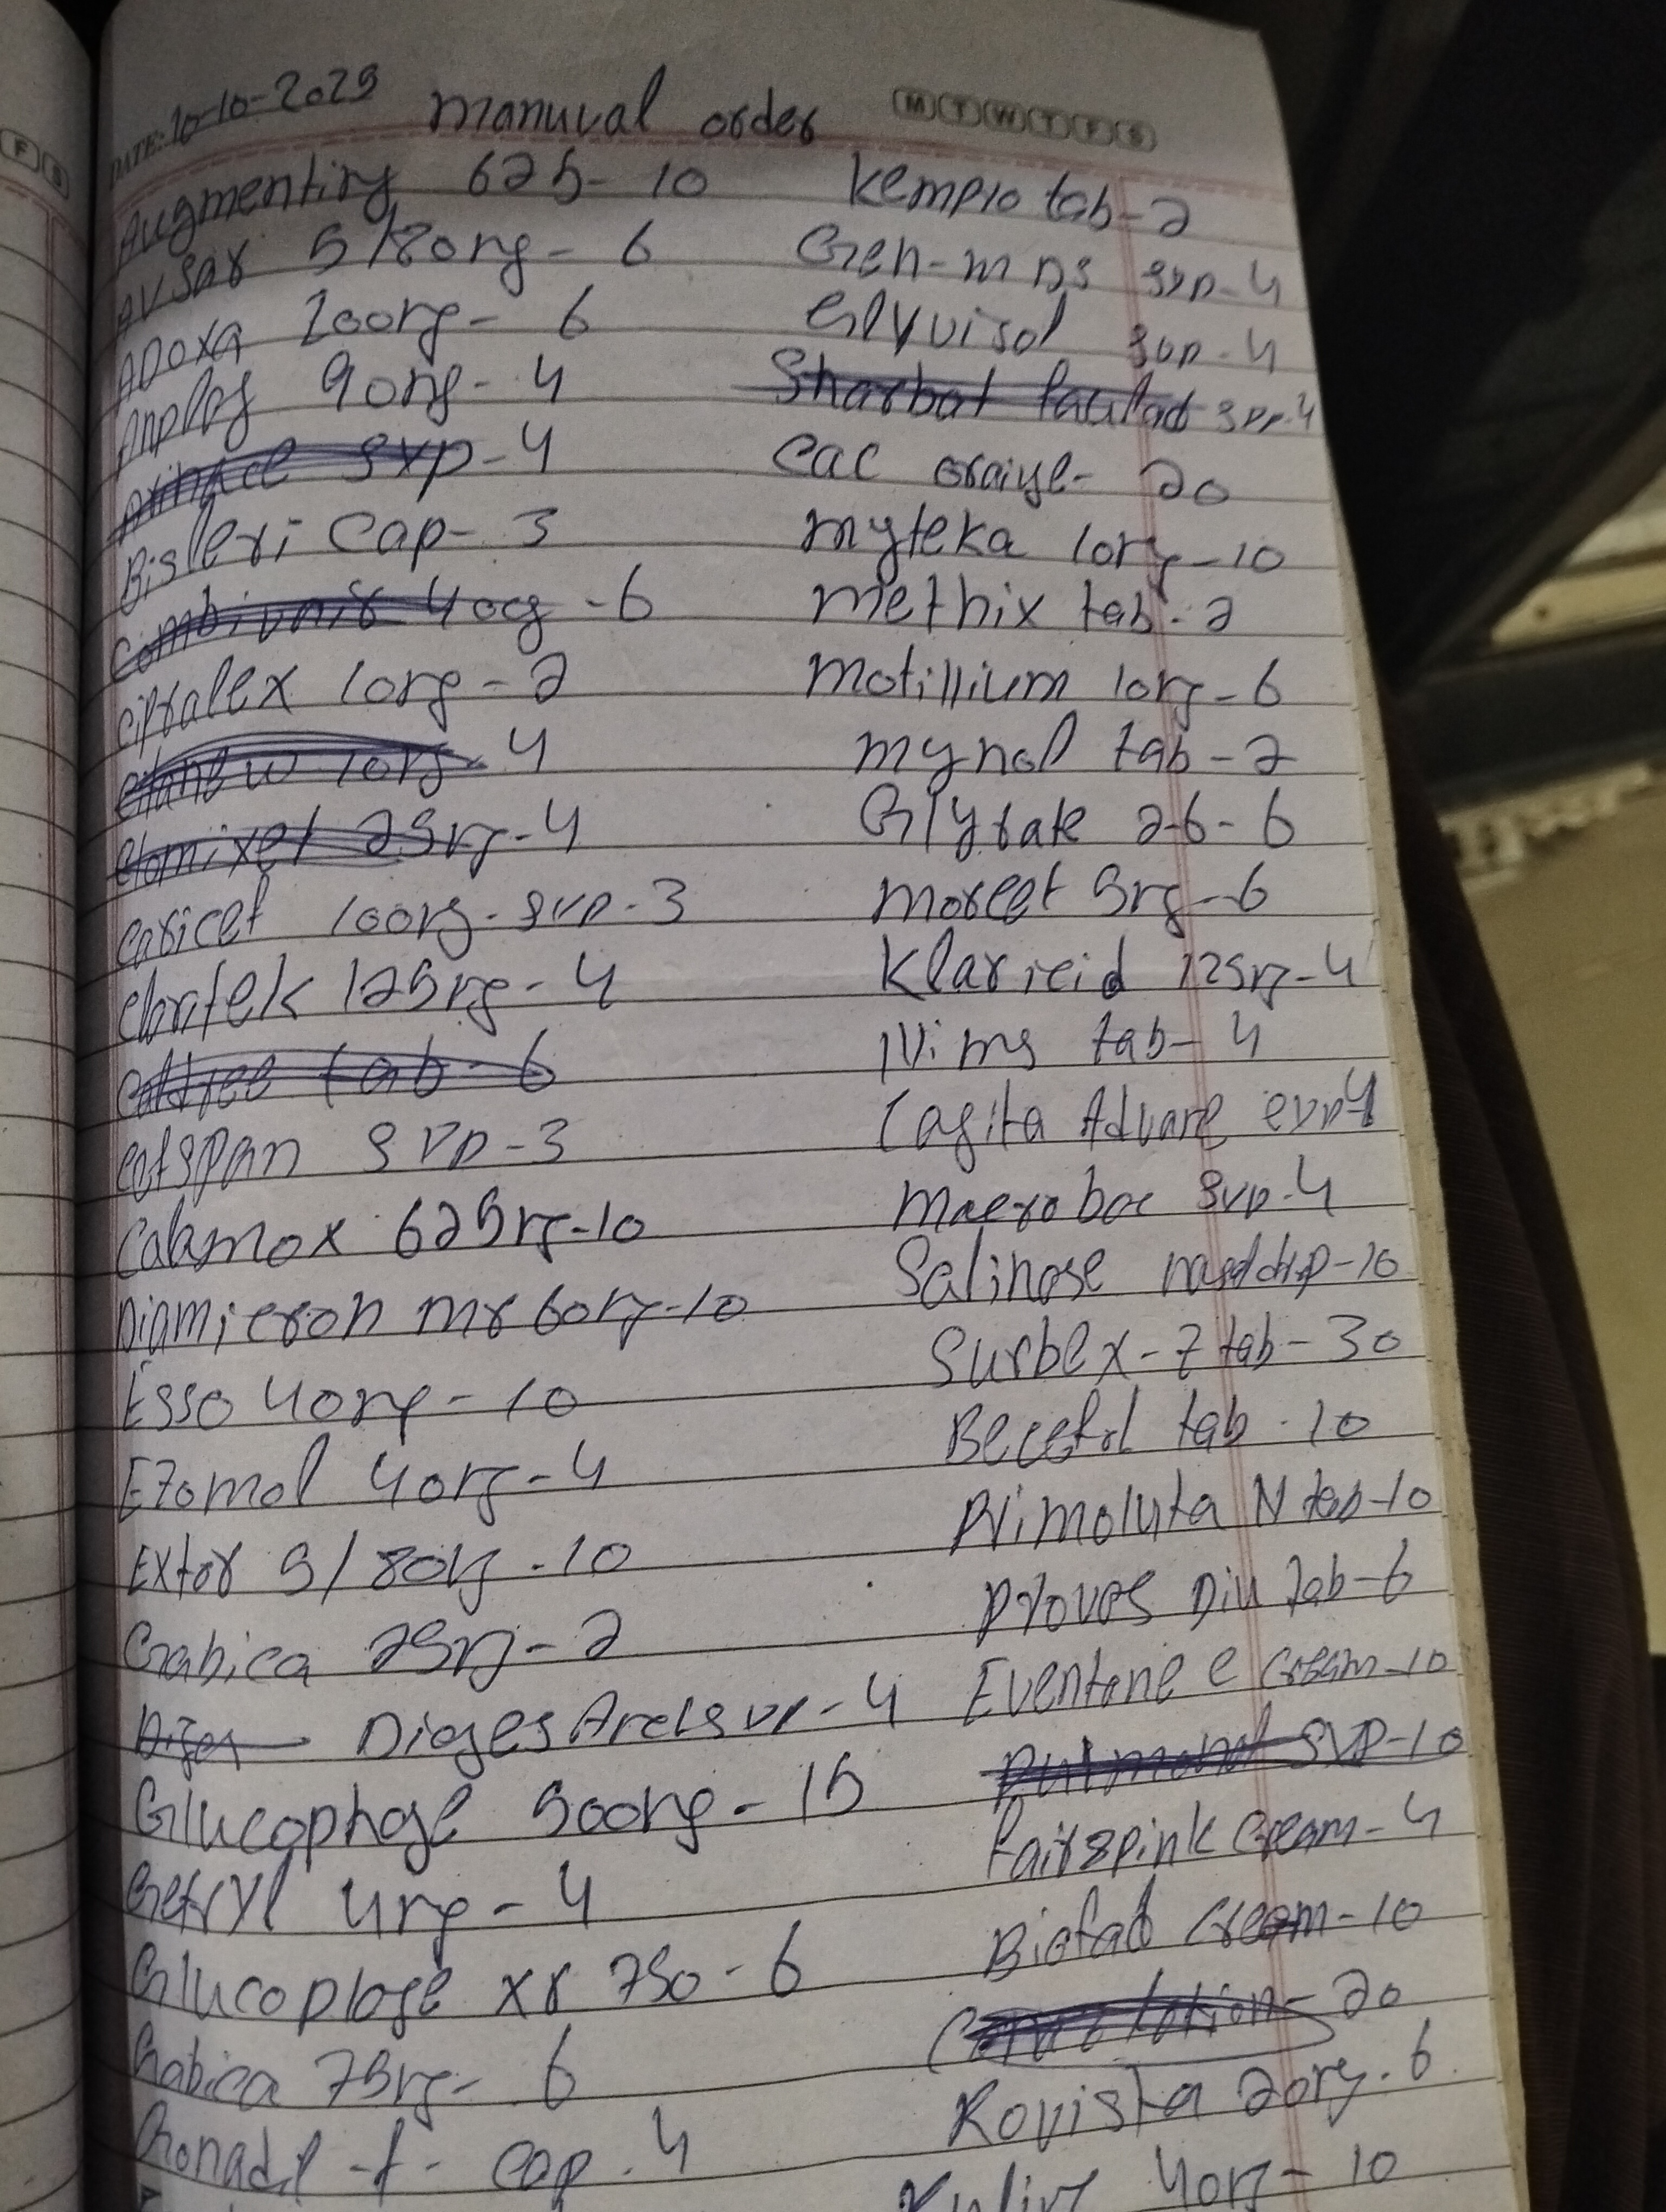 DATE: 10-10-2025 manuval order M T W T F S
Augmenting 625- 10
AVSar 5/80mg- 6
ADOXA 100mg- 6
Anplag 90mg- 4
syp-4
Bisleri Cap- 3
Combivair 400g -6
cipralex 10mg-2
10mg- 4
25mg-4
caricef 100mg-syp-3
claritek 125mg-4
tab-6
cefspan syp-3
Calamox 625mg-10
Diamicron mr 60mg-10
Esso 40mg-10
Ezomol 40mg-4
Extor 5/80mg-10
Gabica 25mg-2
Dioges syp-4
Glucophage 500mg-15
Getryl 4mg-4
Glucophage xr 750-6
Gabica 75mg-6
Gonadil-f- cap-4
Kempro tab-2
Gen-m DS syp-4
Glyvisol syp-4
Sharbat faulad syp-4
Cac oraiye- 20
myteka 10mg-10
methix tab-2
motillium 10mg-6
mynol tab-2
Glytate 2-6- 6
morcet 5mg-6
Klaricid 125mg-4
Nims tab-4
Advance
macrobac syp-4
Salinose nasd drp-10
Surbex-Z tab-30
Becefol tab-10
Primoluta N tab-10
Proves Diu tab-6
Eventone c cream-10
Pulmonol syp-10
fairspink cream-4
Biofad cream-10
lotion- 20
Rovista 20mg-6
40mg-10